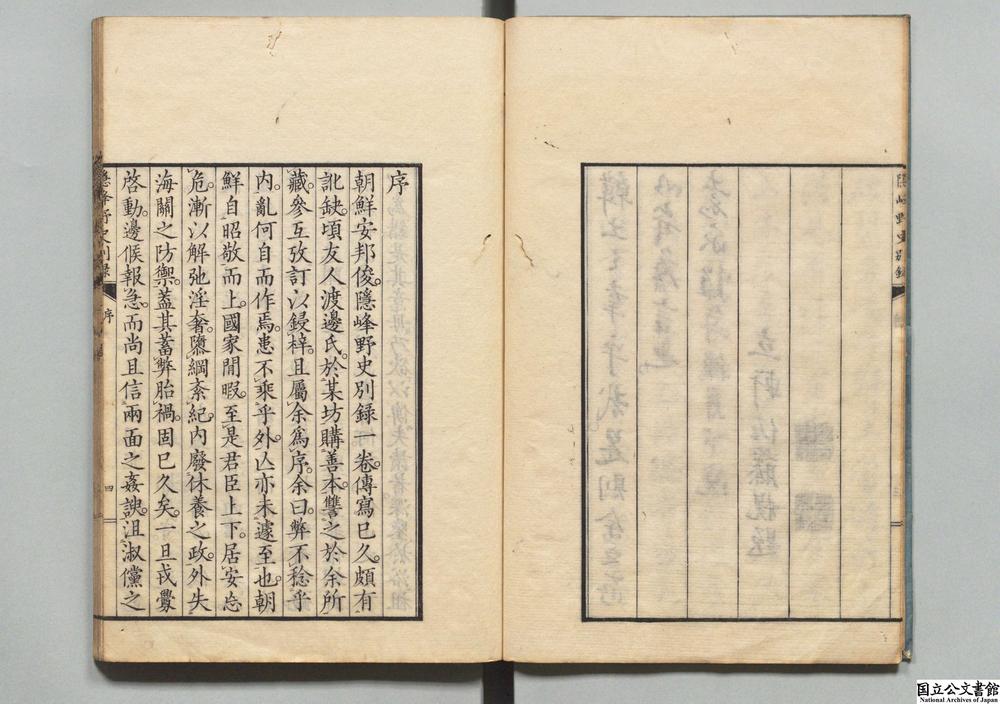 隱峰野史別錄
序
朝鮮安邦俊隱峰野史別錄一卷傳寫已久頗有
訛缺頃友人渡邊氏於某坊購善本讐之於余所
藏參互攷訂以鋟梓且屬余爲序余曰弊不稔乎
内亂何自而作焉患不乘乎外亾亦未遽至也朝
鮮自昭敬而上國家閒暇至是君臣上下居安忘
危漸以解弛淫奢隳綱紊紀内廢休養之政外失
海關之防禦葢其蓄弊胎禍固已久矣一旦戎釁
啓動邊候報急而尚且信兩面之姦諛沮淑儻之
隱峰野史別錄
序
四
国立公文書館
National Archives of Japan